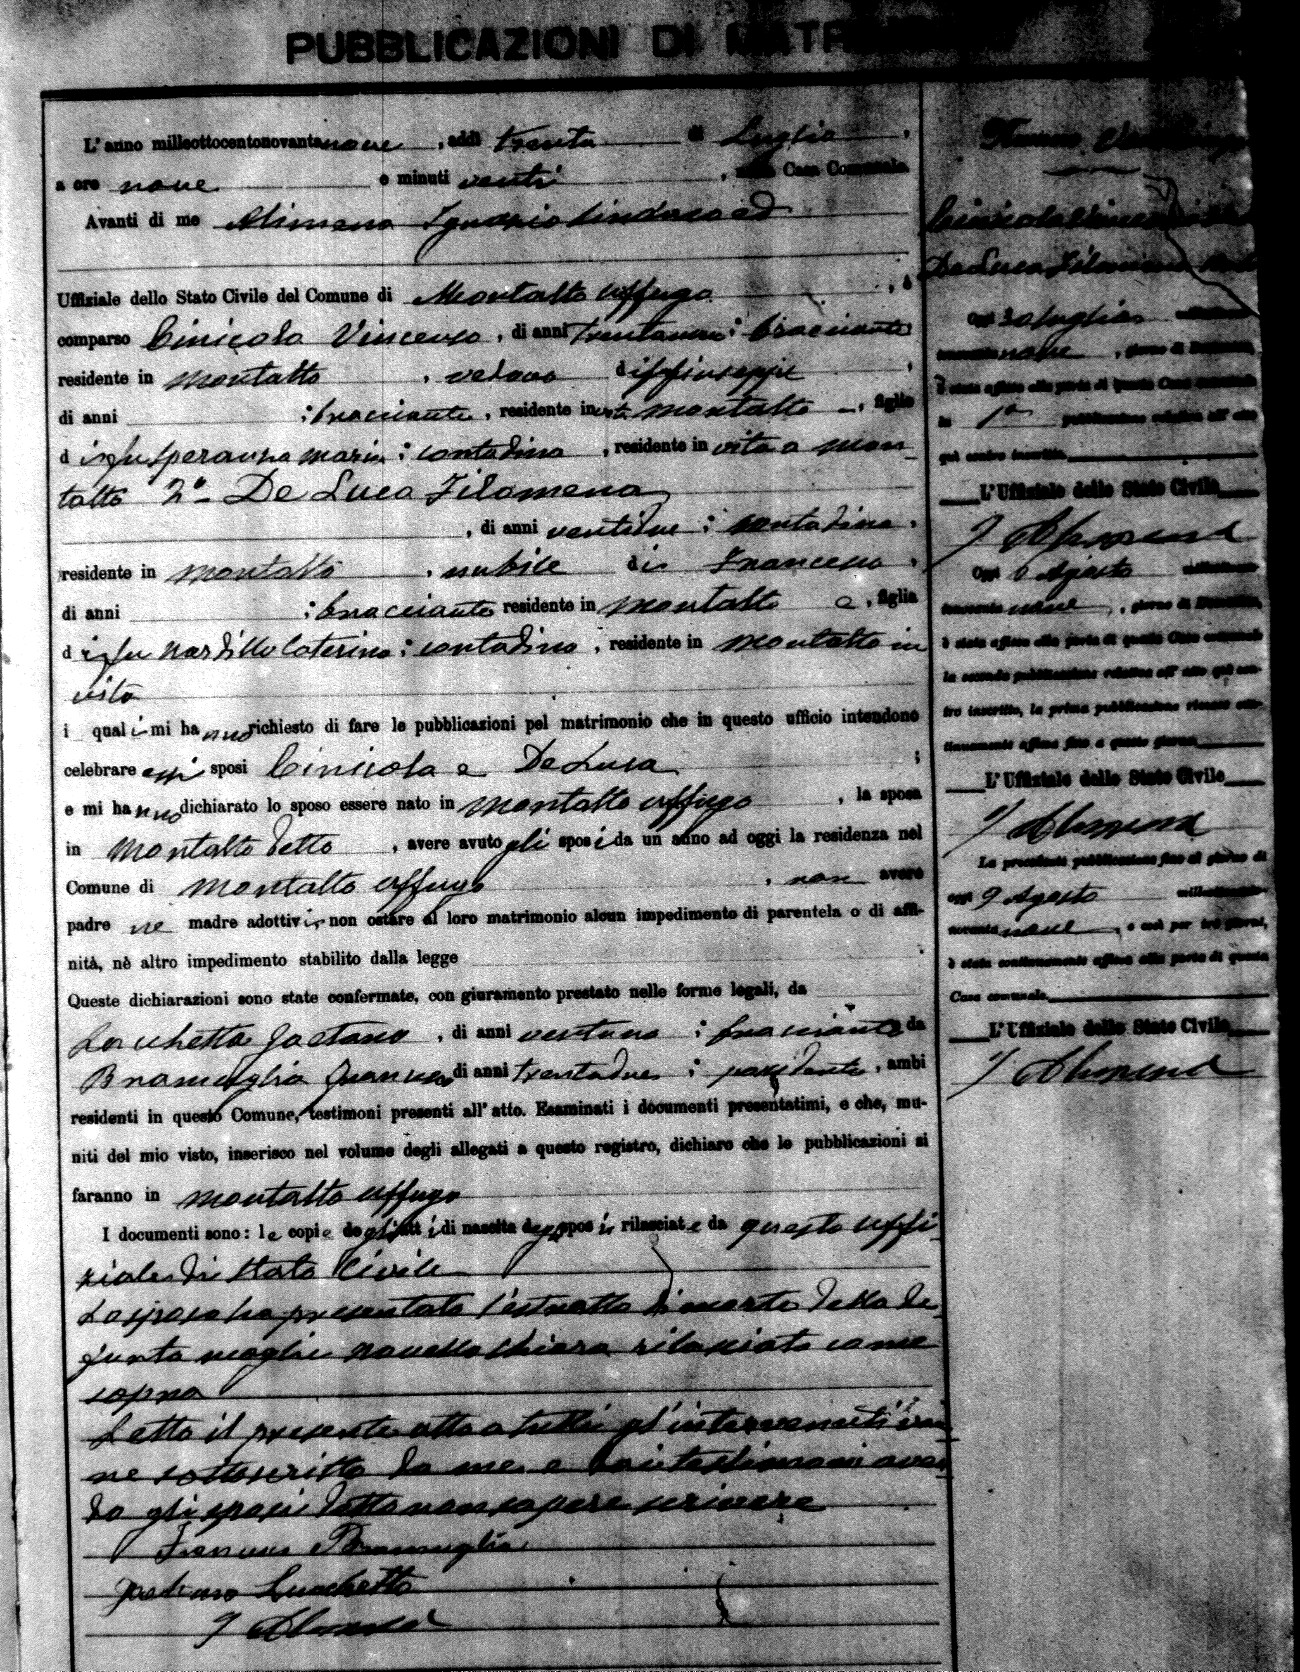 PUBBLICAZIONI DI
L' anno milleottocentonovantanove, addì trenta di Luglio,
a ore nove e minuti venti, nella Casa Comunale
Avanti di me Alimena Ignazio Sindaco ed
Uffiziale dello Stato Civile del Comune di Montalto Uffugo, è
comparso Cinicola Vincenzo, di anni ; bracciante
residente in Montalto, vedovo di Giuseppe,
di anni ; bracciante, residente in Montalto, figlio
d i fu Speranza Maria ; contadina, residente in vita a Mon-
talto 2° De Luca Filomena
, di anni ventidue ; contadina,
residente in Montalto, nubile di Francesco,
di anni ; bracciante residente in Montalto e, figlia
d i fu Nardillo Caterina ; contadina, residente in Montalto in
vita
i quali mi hanno richiesto di fare le pubblicazioni pel matrimonio che in questo ufficio intendono
celebrare essi sposi Cinicola e De Luca ;
e mi hanno dichiarato lo sposo essere nato in Montalto Uffugo, la sposa
in Montalto detto, avere avuto gli sposi da un anno ad oggi la residenza nel
Comune di Montalto Uffugo, non avere
padre ne madre adottivi non ostare al loro matrimonio alcun impedimento di parentela o di affi-
nità, nè altro impedimento stabilito dalla legge
Queste dichiarazioni sono state confermate, con giuramento prestato nelle forme legali, da
Gaetano, di anni ventuno ; bracciante da
Bramuglia Francesco di anni trentadue ; possidente, ambi
residenti in questo Comune, testimoni presenti all' atto. Esaminati i documenti presentatimi, e che, mu-
niti del mio visto, inserisco nel volume degli allegati a questo registro, dichiaro che le pubblicazioni si
faranno in Montalto Uffugo
I documenti sono: le copie degli atti di nascita degli sposi rilasciate da questo Uffi-
ziale di Stato Civile
Lo sposo ha presentato l'estratto di morte della de-
funta moglie Chiara rilasciato come
sopra
Letto il presente atto a tutti gl'intervenuti vie-
ne sottoscritto da me e dai testimoni aven-
do gli sposi detto non sapere scrivere
Francesco Bramuglia
Gaetano
I Alimena
Numero
Cinicola Vincenzo
De Luca Filomena
Oggi 30 Luglio
novanta nove, giorno di Domenica,
è stata affissa alla porta di questa Casa comunale
la 1a pubblicazione relativa all' atto
qui contro inscritto.
L'Uffiziale dello Stato Civile
I Alimena
Oggi 6 Agosto
novanta nove, giorno di Domenica,
è stata affissa alla porta di questa Casa comunale
la seconda pubblicazione relativa all' atto qui con-
tro inscritto, la prima pubblicazione rimase con-
tinuamente affissa fino a questo giorno
L'Uffiziale dello Stato Civile
I Alimena
La precedente pubblicazione fino al giorno di
oggi 9 Agosto milleottocento-
novanta nove, e così per tre giorni,
è stata continuamente affissa alla porta di questa
Casa comunale.
L'Uffiziale dello Stato Civile
I Alimena